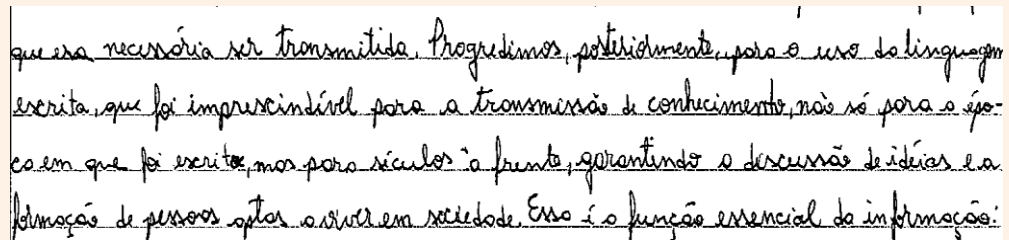 que era necessária ser transmitida. Progredimos, posteriormente, para o uso da linguagem
escrita, que foi imprescindível para a transmissão de conhecimento, não só para a épo-
ca em que foi escrito, mas para séculos à frente, garantindo a discussão de idéias e a
formação de pessoas aptas a viver em sociedade. Essa é a função essencial da informação: